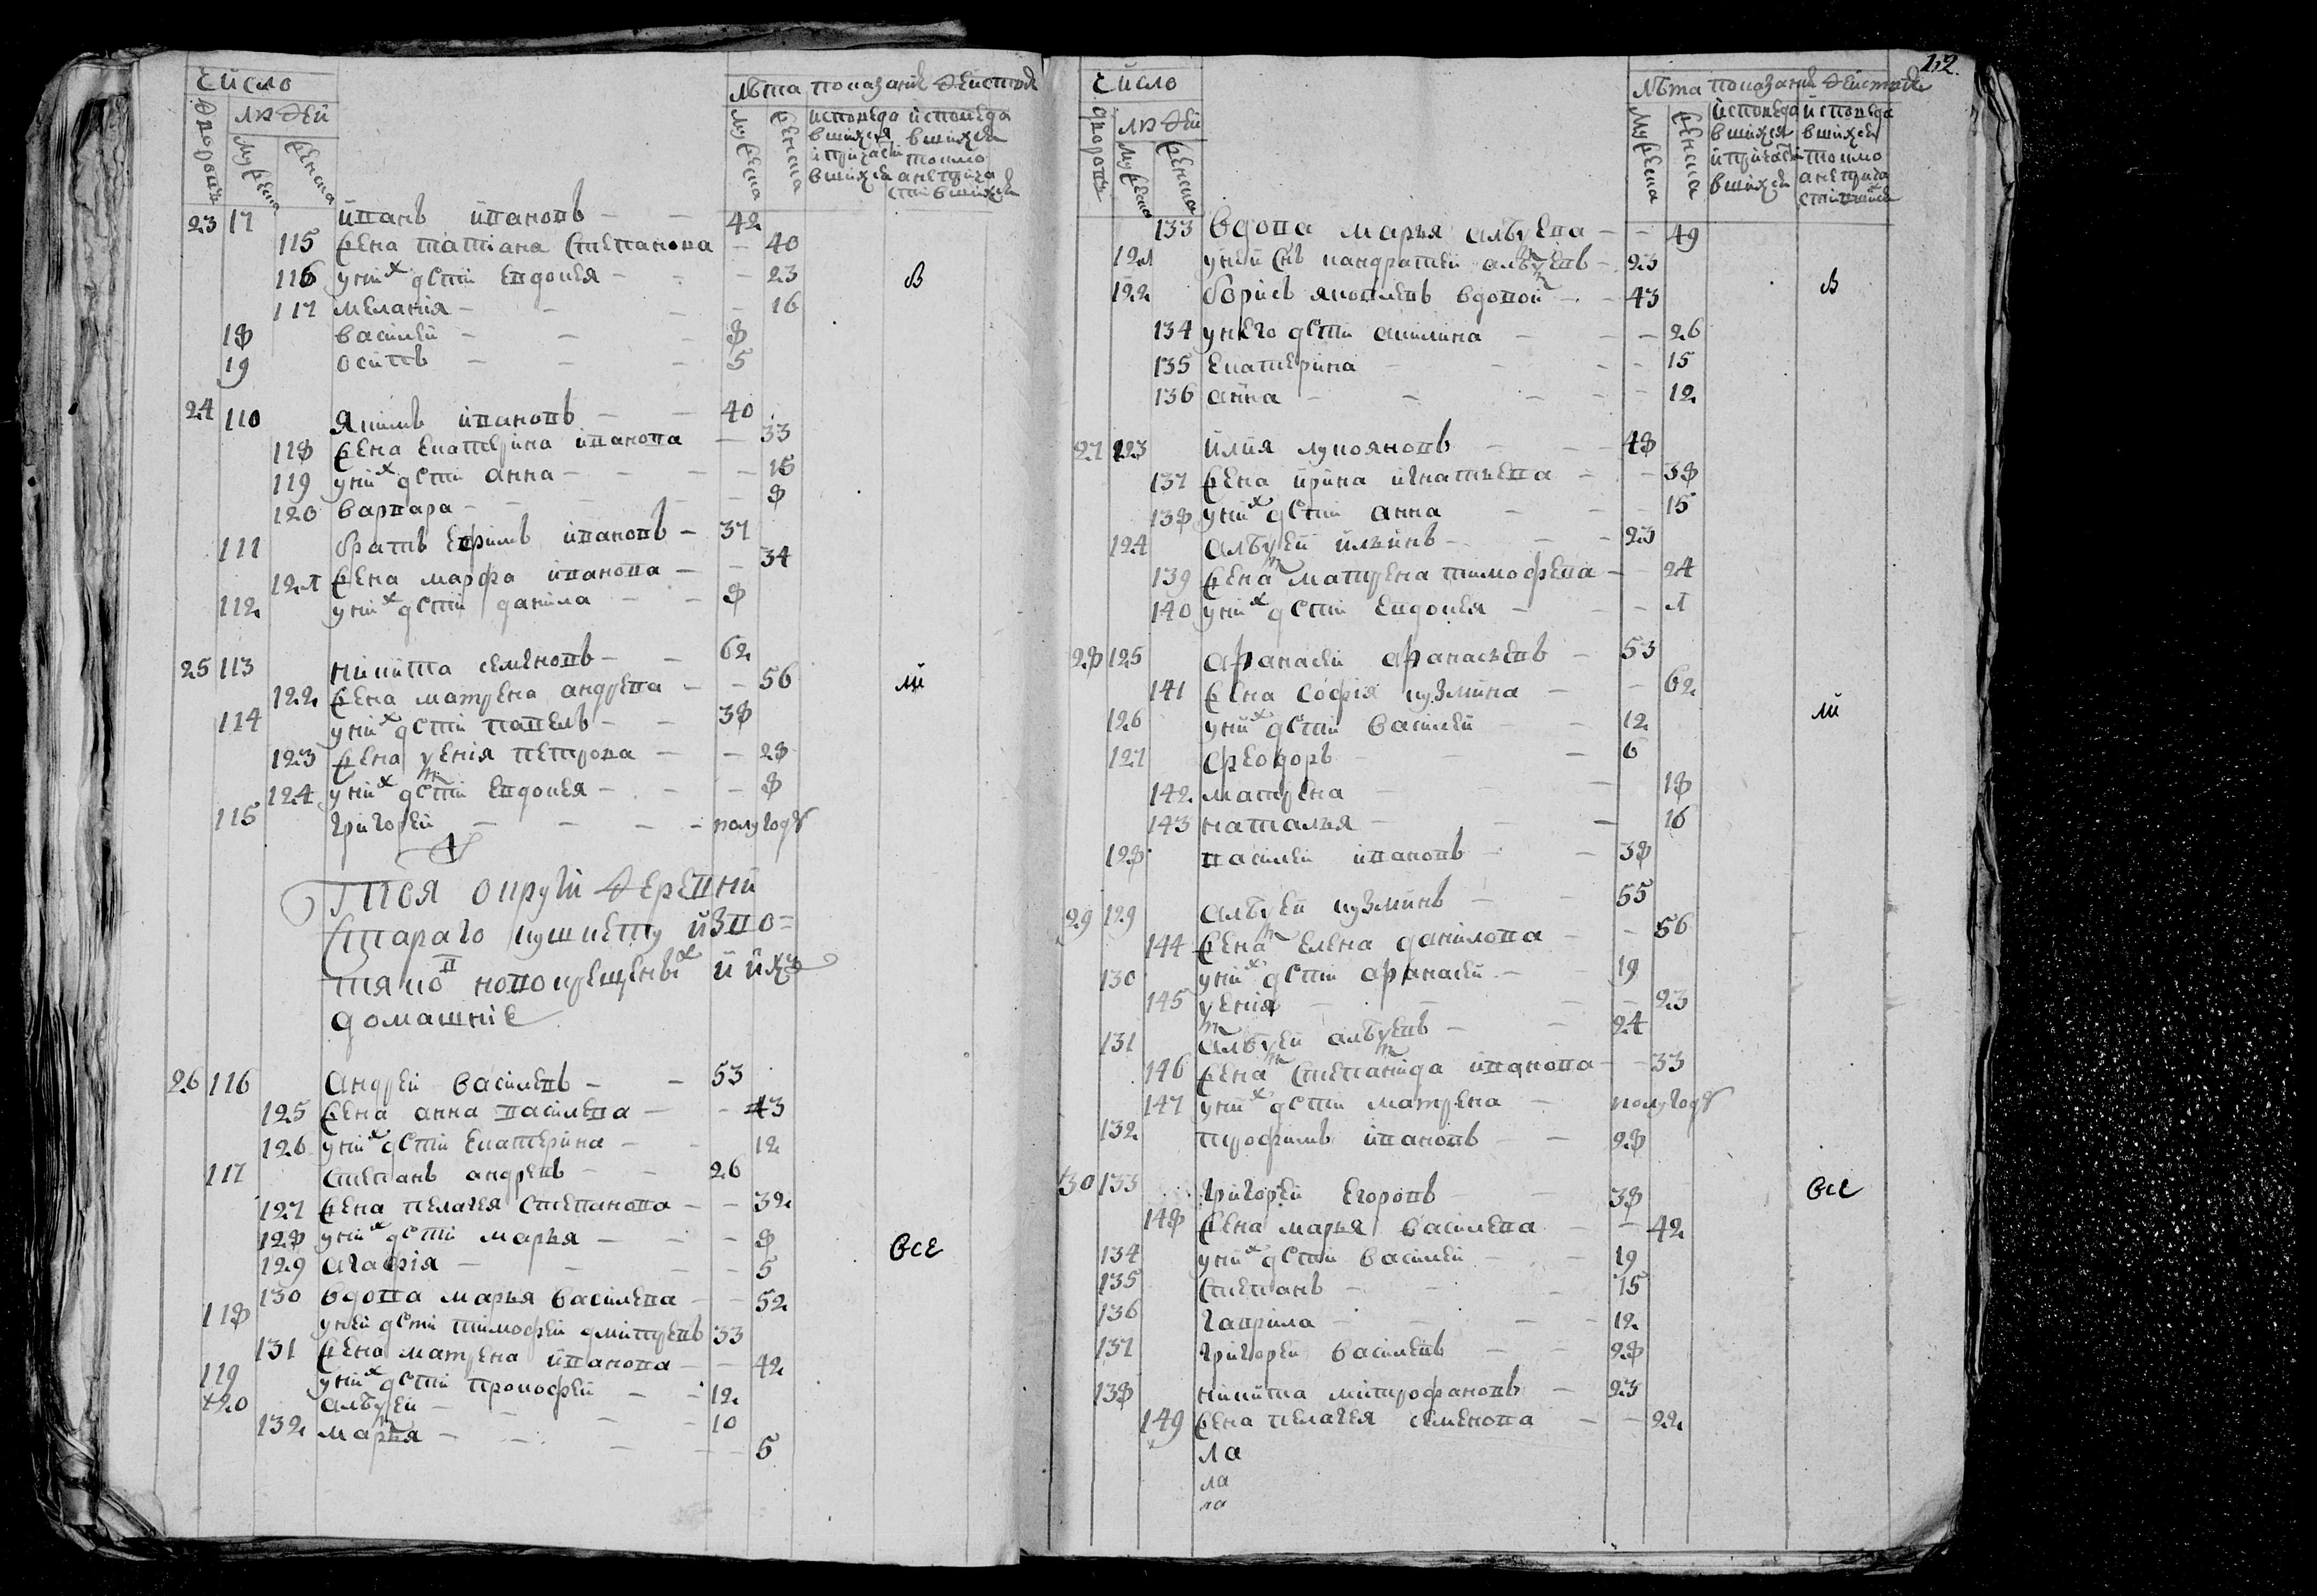 число
людей
дворовъ
мужеска
женска
лѣта показаніе действ
мужеска
женска
исповедавшихся и причастившихся
исповедавшихся токмо а непричастившихся
23 17 иванъ ивановъ 42
115 жена татiана степанова 40
116 у нихъ дети евдокея 23 в
117 меланiя 16
18 василей 8
19 осипъ 5
24 110 якимъ ивановъ 40
118 жена екатерина иванова 33
119 у нихъ дети анна 15
120 варвара 8
111 братъ ефимъ ивановъ 37
121 жена марфа иванова 34
112 у нихъ дети данила 8
25 113 никита семеновъ 62
122 жена матрена андреева 56 ли
114 у нихъ дети павелъ 38
123 жена ксенiя петрова 28
124 у нихъ дети евдокея 8
115 григорей полугоду
Тоя округи деревни
стараго кушкету изво-
тяковъ новокрещеныхъ и ихъ
домашнiе
26 116 андрей василевъ 53
125 жена анна василева 43
126 у нихъ дети екатерина 12
117 степанъ андревъ 26
127 жена пелагея степанова 32
128 у нихъ дети марья 8
129 агафiя 5 все
130 вдова марья василева 52
118 у ней дети тимофей дмитревъ 33
131 жена матрена иванова 42
119 у нихъ дети прокофей 12
120 алексей 10
132 марья 5
132
число
людей
дворовъ
мужеска
женска
лѣта показаніе действ
мужеска
женска
исповедавшихся и причастившихся
исповедавшихся токмо а непричастившихся
133 вдова марья алексева 49
121 у ней сынъ кандратей алексевъ 23
122 борисъ яковлевъ вдовой 43 в
134 у него дети акилина 26
135 екатерина 15
136 анна 12
27 123 илия лукояновъ 48
137 жена ирина игнатьева 38
138 у нихъ дети анна 15
124 алексей ильинъ 23
139 жена матрена тимофева 24
140 у нихъ дети евдокея 1
28 125 афанасей афанасьевъ 53
141 жена софiя кузмина 62
126 у нихъ дети василей 12 ли
127 феодоръ 6
142 матрена 18
143 наталья 16
128 василей ивановъ 38
29 129 алексей кузминъ 55
144 жена елена данилова 56
130 у нихъ дети афанасей 19
145 ксенiя 23
131 алексей алексевъ 24
146 жена степанида иванова 33
147 у нихъ дети матрена полугоду
132 трофимъ ивановъ 28
30 133 григорей егоровъ 38 все
148 жена марья василева 42
134 у нихъ дети василей 19
135 степанъ 15
136 гаврила 12
137 григорей василевъ 28
138 никита митрофановъ 23
149 жена пелагея семенова 22
ла
ла
ла